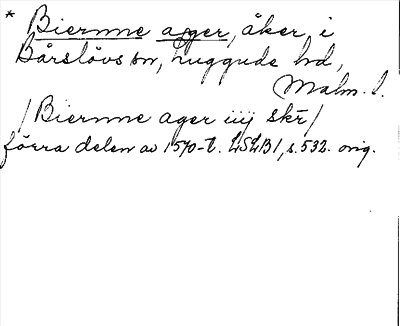 * Biernne ager, åker, i
Bårslövs sn, Luggude hd,
Malm. l.
/Biernne ager iiij skr/
förra delen av 1570-t. LSLB1, s. 532. orig.